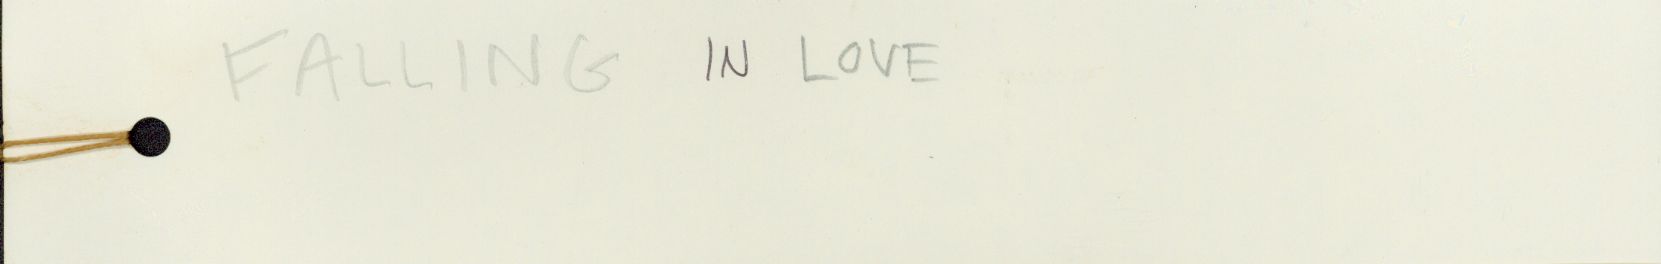 FALLING IN LOVE